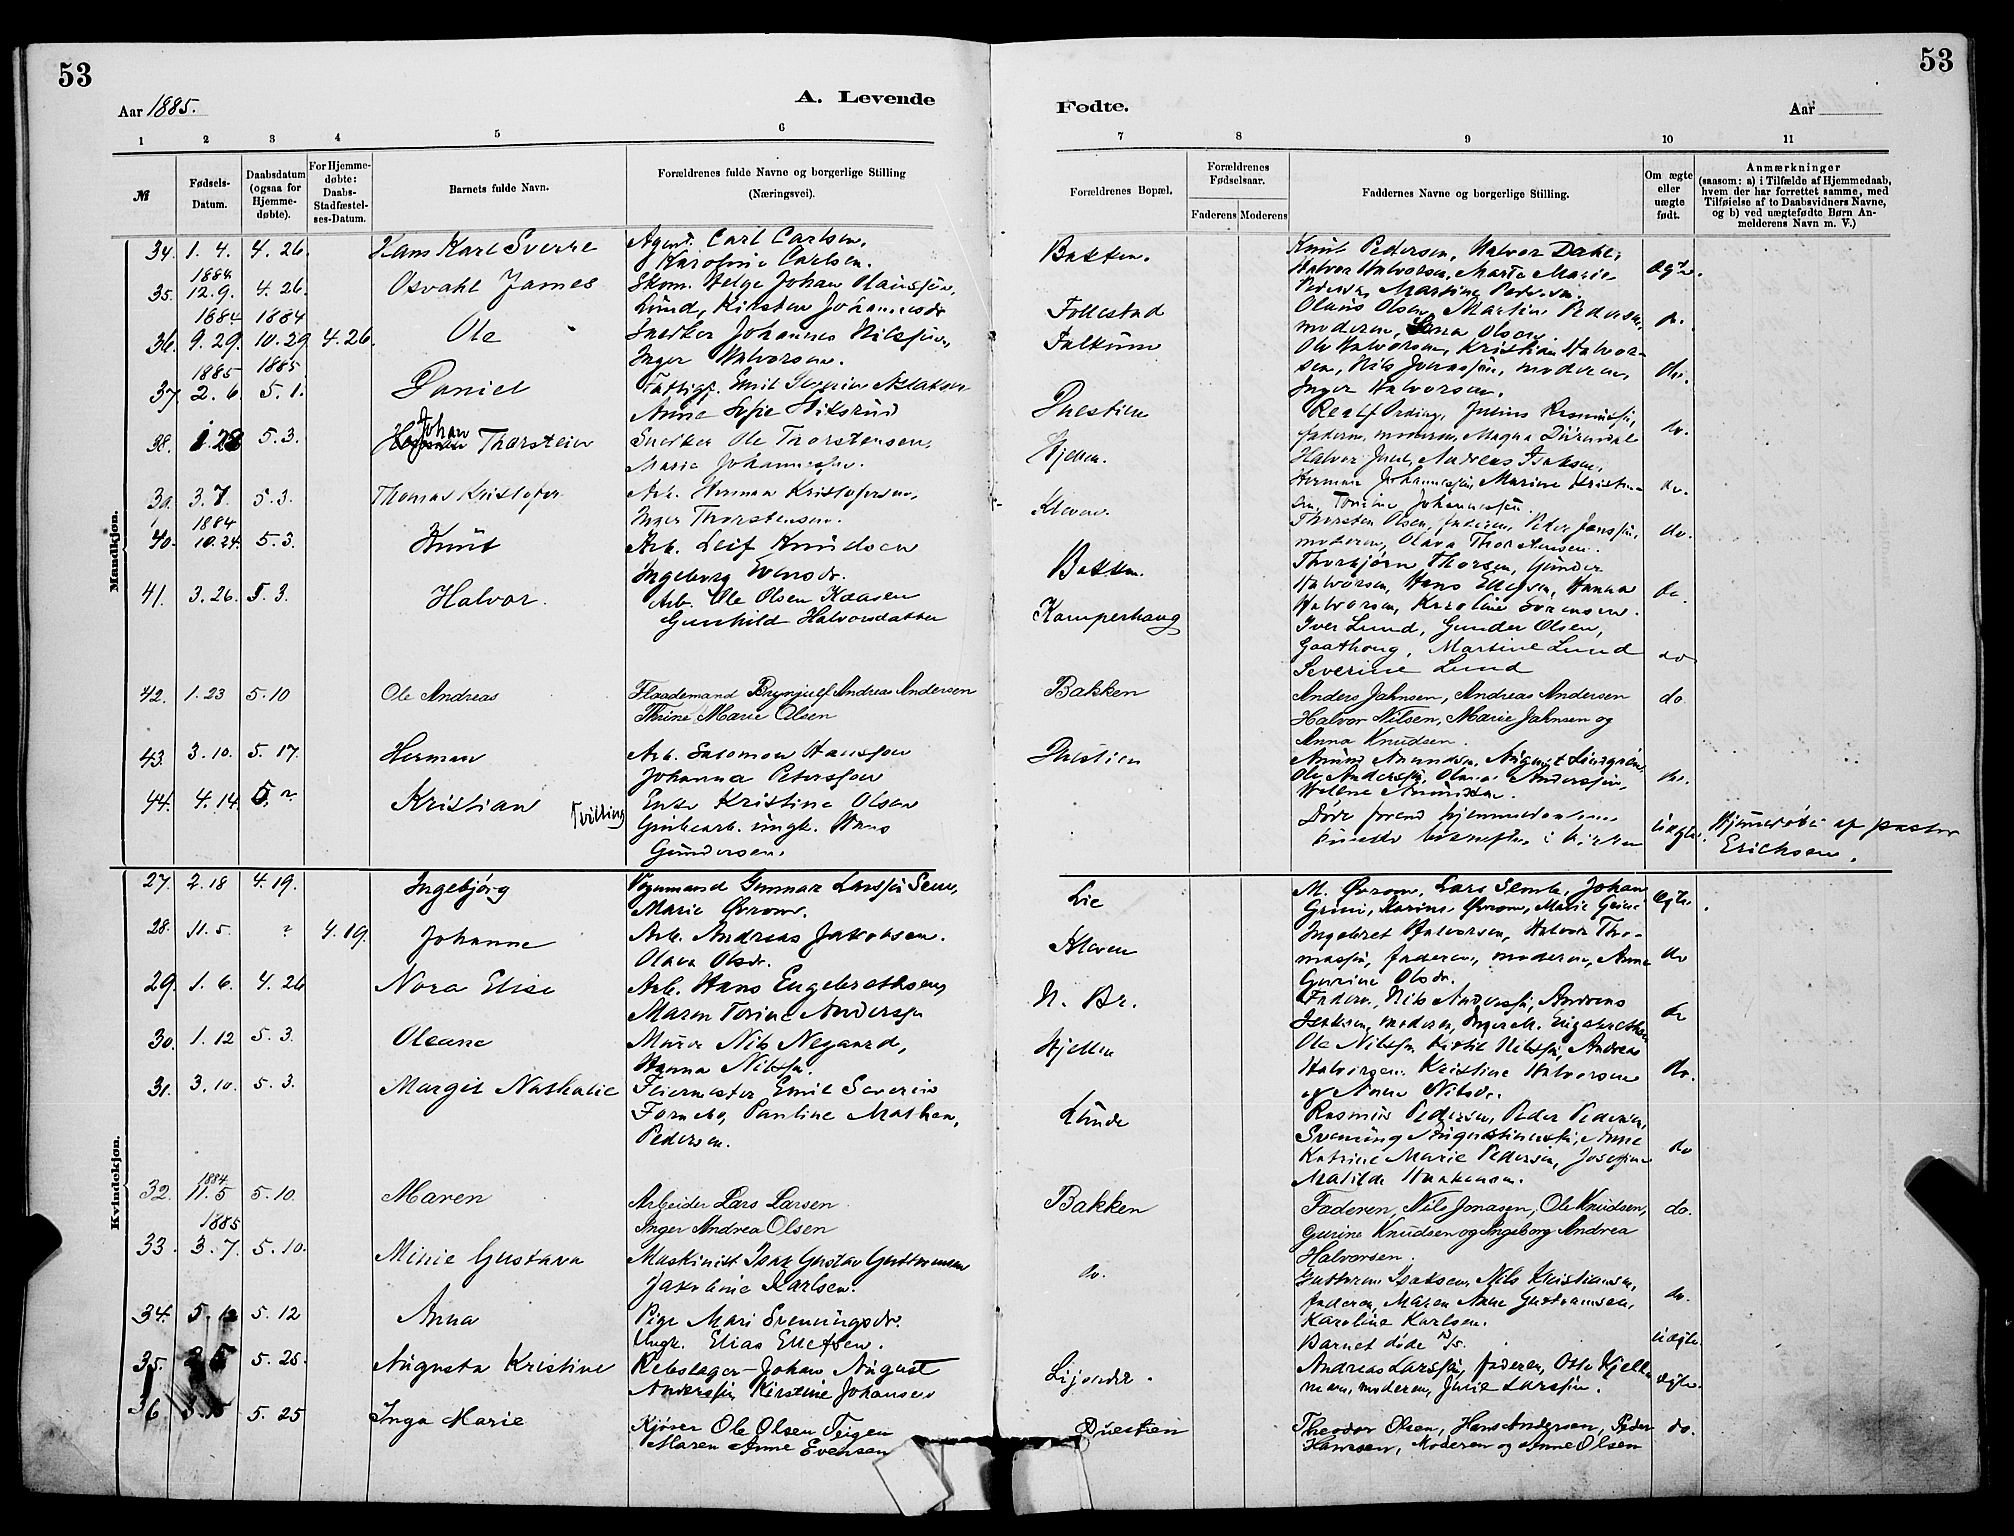 53
53
Aar 1885.
A. Levende
Fødte.
Aar
1 2 3 4 5 6 7 8 9 10 11
№
Fødsels-Datum.
Daabsdatum (ogsaa for Hjemmedøbte).
For Hjemmedøbte: Daabs-Stadfæstelses-Datum.
Barnets fulde Navn.
Forældrenes fulde Navne og borgerlige Stilling (Næringsvei).
Forældrenes Bopæl.
Forældrenes Fødselsaar.
Faderens Moderens
Faddernes Navne og borgerlige Stilling.
Om ægte eller uægte født.
Anmærkninger
(saasom: a) i Tilfælde af Hjemmedaab, hvem der har forrettet samme, med Tilføielse af to Daabsvidners Navne, og b) ved uægtefødte Børn Anmelderens Navn m. V.)
Mandkjøn.
34. 1. 4. 4. 26. Hans Karl Sverre Agent. Carl Carlsen, Bakken. Knut Pedersen, Halvor Dahl,
Karoline Carlsen. Halvor Halvorsen, Marte Marie Ægte.
1884 Pedersen, Martine Pedersen.
35. 12. 9. 4. 26. Osvald James Skom. Helge Johan Hansson,
Lund, Kirsten Johannesdr Follestad Olaus Olsen, Martin Pedersen, do.
1884 1884 moderen, Olsen.
36. 9. 29. 10. 29 4. 26. Ole Snedker Johannes Nilssøn, Falkum Ole Halvorsen, Kristian Halvor-
Inger Halvorsen. sen, Nils Jonassøn, moderen, do.
1885 1885 Inger Halvorsen.
37. 2. 6. 5. 1. Daniel Emil
Anne Sofie Duestien
faderen, moderen, Magna do.
38. 1. 28 5. 3. Johan Thorstein Snedker Ole Thorstensen, Hjellen.
Marie Halvor Andreas Isaksen.
39. 3. 7. 5. 3. Thomas Kristofer Arb. Herman Kristofersen, Kleven. Herman Johannessøn, Marine Kristen- do.
Inger Thorstensen. sen, Tomine Johannessøn.
1884 Thorsten Olsen, faderen, Peder Janssøn, do.
40. 10. 24. 5. 3. Knut Arb. Leif Knudsen moderen, Olava Thorstensen.
Ingeborg Evensdr. Bakken. Thorbjørn Thorsen, Gunder
41. 3. 26. 5. 3. Halvor. Arb. Ole Olsen Kaasen Halvorsen, Hans Ellefsen, Hanna do.
Gunhild Halvorsdatter Kamperhaug Halvorsen, Karoline Sørensen.
Iver Lund, Gunder Olsen,
Gaathoug, Martine Lund do
Severine Lund
42. 1. 23 5. 10 Ole Andreas Flaademand Brynjulf Andreas Andersen Bakken Anders Jahnsen, Andreas Andersen do.
Thrine Marie Olsen Halvor Nilsen, Marie Jahnsen og
Anna Knudsen.
43. 3. 10. 5. 17. Herman Arb. Salomon Hanssøn Duestien Amund Amundsen, August Lindgren,
Johanna Peterssøn Ole Anderssøn, Anderssøn, do.
Helene Amundsen.
44. 4. 14. 5. ? Kristian Tvilling Enke Kristine Olsen Døde førend hjemmedaaben
Grubearb. ungk. Hans kunde bekræftes i kirken Uægte. Hjemmedøbt af pastor
Gundersen. Erichsen.
Kvindekjøn.
27. 2. 18 4. 19. Ingebjørg Vognmand Gunnar Larssøn Sem, Lie M. Øvrom, Lars Semb, Johan Ægte.
Marie Øvrom. Grini, Karine Øvrom, Marie Grini
28. 11. 5. ? 4. 19. Johanne Arb. Andreas Jakobsen. Kleven Ingebret Halvorsen, Halvor Tho-
Olava Olsdr. massøn, faderen, moderen, Anne do
Gurine Olsdr.
29. 1. 6. 4. 26 Nora Elise Arb. Hans Engebrethsen, N. Br. Faderen, Nils Anderssøn, Andreas
Maren Torine Anderssøn moderen, Inger M. Engebrethsen do
30. 1. 12 5. 3. Oleane Murer Nils Negaard, Hjellen Ole Nilssøn, Kittil Nilssøn, Andreas
Hanna Nilssøn. Halvorsen. Kristine Halvorsen do.
31. 3. 10. 5. 3. Margit Nathalie Feiermester Emil Severin og Anne Nilsdr.
Fornebo, Pauline Mathea, Lunde Rasmus Pedersen, Peder Pedersen,
Pedersen. Svenning Augustinussøn, Anne
Katrine Marie Pedersen, Josefine do
Matilde Haakensen.
1884
32. 11. 5 5. 10. Maren Arbeider Lars Larsen Bakken Faderen, Nils Jonasen, Ole Knudsen, do.
Inger Andrea Olsen Gurine Knudsen og Ingeborg Andrea
1885 Halvorsen.
33. 3. 7. 5. 10. Minie Gustava Maskinist Isak Gustav Guttormsen do. Guttorm Isaksen, Nils Kristiansen,
Jakobine Karlsen. faderen, Maren Anne Guttormsen, do.
Karoline Karlsen.
34. 5. 12 5. 12 Anna Pige Mari Svenningsdr. Barnet døde Uægte.
Ungk. Elias Ellefsen.
35. 5. 25. Augusta Kristine Rebslager Johan August Andreas Larssøn, faderen, Otto Kjell-
Anderssøn, Kirstine Johansen man, moderen, Larssøn. ægte.
36. 5. 25 Inga Marie Kjører Ole Olsen Teigen Duestien Theodor Olsen, Hans Andersen, Peder do.
Maren Anne Evensen Hansen, Moderen og Anne Olsen